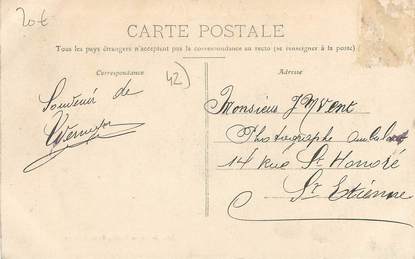 20€
CARTE POSTALE
Tous les pays étrangers n'acceptent pas la correspondance au recto (se renseigner à la poste)
Correspondance
Adresse
42)
Souvenir de
Monsieur
Photographe
14 rue St Honoré
St Etienne